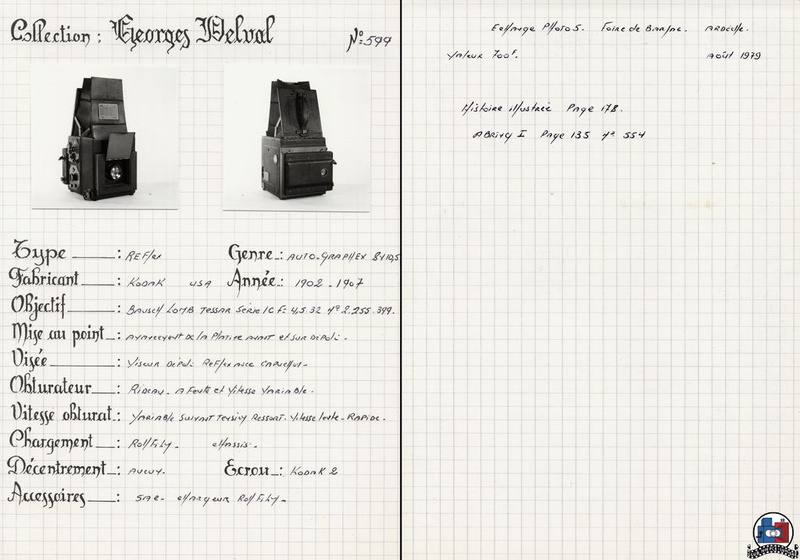 Collection : Georges Delval Nº 599
Type : REFlex Genre : AUTO-GRAPHEX 8x10,5
Fabricant : KODAK USA Année : 1902 - 1907
Objectif : BAUSCH LOMB TESSAR Série 1C F: 4,5.32 nº 2.255.399.
Mise au point : Avancement de la Platine avant et sur Dépoli.
Visée : Viseur Dépoli Reflex avec Capuchon.
Obturateur : Rideau - A Fente et Vitesse Variable.
Vitesse obturat : Variable suivant Tension Ressort. Vitesse lente - Rapide.
Chargement : RollFilm - châssis -
Décentrement : Aucun. Ecrou : KODAK 2
Accessoires : SAC - chargeur RollFilm -
Echange Photos. Foire de Ardèche.
Valeur 700f. Août 1979
Histoire illustrée Page 178.
ABRING I Page 135 nº 554